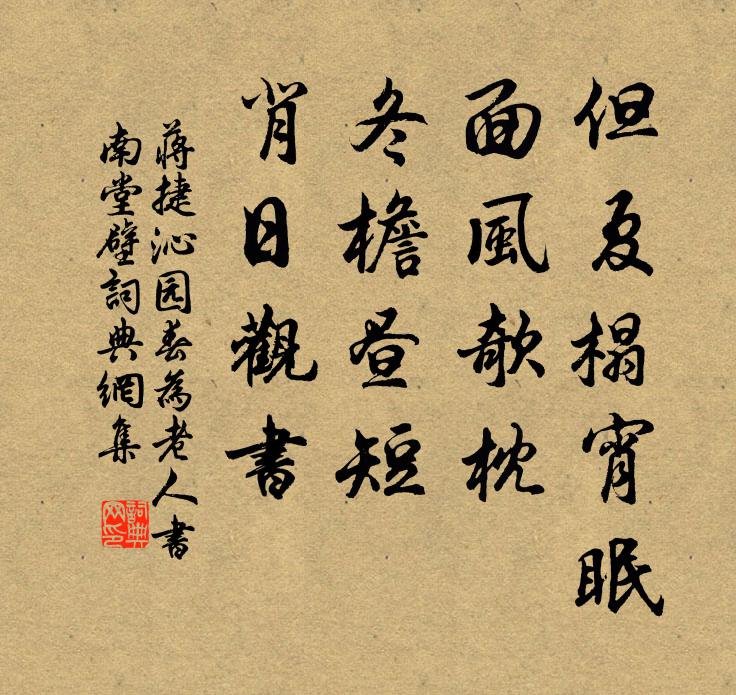 但夏榻宵眠
面風欹枕
冬檐昼短
背日觀書
蔣捷沁园春為老人書
南堂壁詞典網集
詞典
网印